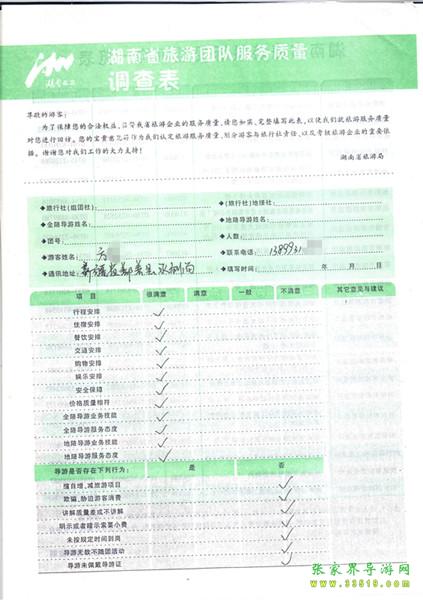 湖南省旅游团队服务质量
调查表
尊敬的游客：
为了保障您的合法权益，监督我省旅游企业的服务质量，请您如实、完整填写此表，以便我们就旅游服务质量
对您进行回访。您的宝贵意见将作为我们认定旅游服务质量，划分游客与旅行社责任，以及考核旅游企业的重要依
据。谢谢您对我们工作的大力支持！
湖南省旅游局
◆旅行社(组团社)： ◆(旅行社)地接社：
◆全陪导游姓名： ◆地陪导游姓名：
◆团号： ◆人数：
◆游客姓名：方 ◆联系电话：1389931
◆通讯地址：新疆 ◆填写时间： 年 月 日
项目 很满意 满意 一般 不满意 其它意见与建议
行程安排 ✓
住宿安排 ✓
餐饮安排 ✓
交通安排 ✓
购物安排 ✓
娱乐安排 ✓
安全保障 ✓
价格质量相符 ✓
全陪导游业务技能 ✓
全陪导游服务态度 ✓
地陪导游业务技能 ✓
地陪导游服务态度 ✓
导游是否存在下列行为： 是 否
擅自增、减旅游项目 ✓
欺骗、胁迫游客消费 ✓
讲解质量差或不讲解 ✓
明示或者暗示索要小费 ✓
未按规定时间到岗 ✓
导游无故不随团活动 ✓
导游未佩戴导游证 ✓
张家界导游网
www.33519.com